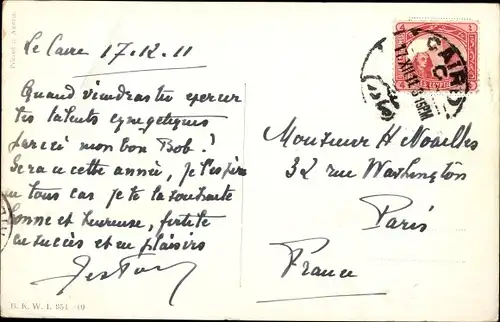 Le Caire 17.12.11
Quand viendras tu exercer
tes talents cynegetiques
par ici mon bon Bob ?
Sera ce cette année, je l'espère
en tous cas je te la souhaite
bonne et heureuse, fertile
en succès et en plaisirs
Monsieur H Noailles
32 rue Washington
Paris
France
CAIRO
C
B. K. W. I. 851-10